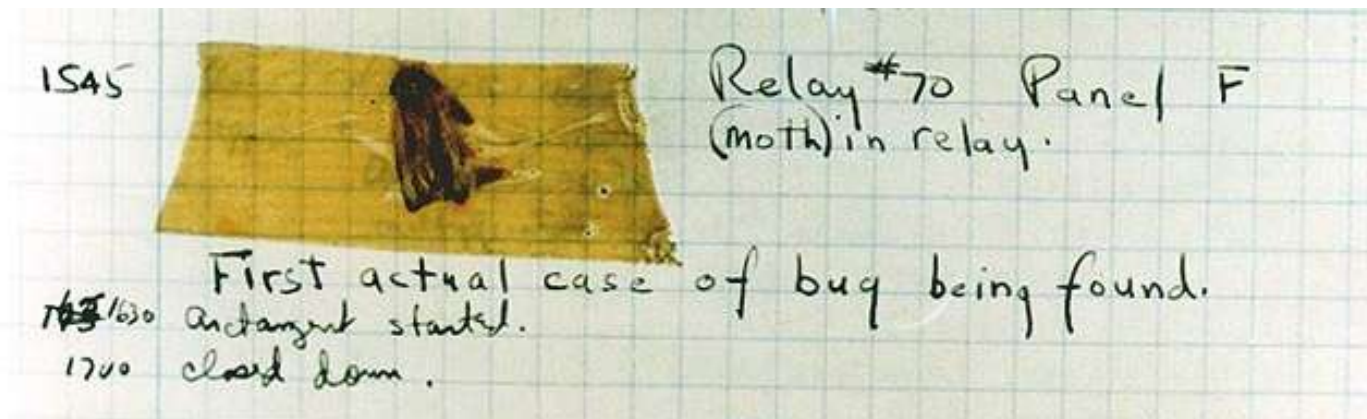 1545
Relay #70 Panel F
(moth) in relay.
First actual case of bug being found.
1630 arctangent started.
1700 closed down.